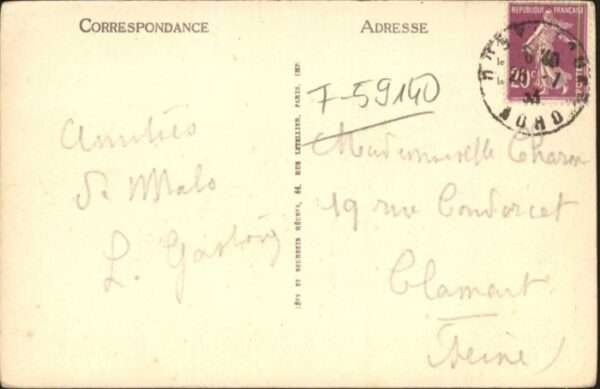 CORRESPONDANCE
ADRESSE
RÉPUBLIQUE FRANÇAISE
20c
NORD
F-59140
Amitiés
de Malo
L.
Mademoiselle Charon
19 rue Condorcet
Clamart
(Seine)
LÉVY ET NEURDEIN RÉUNIS, 44, RUE LETELLIER, PARIS, IMP.